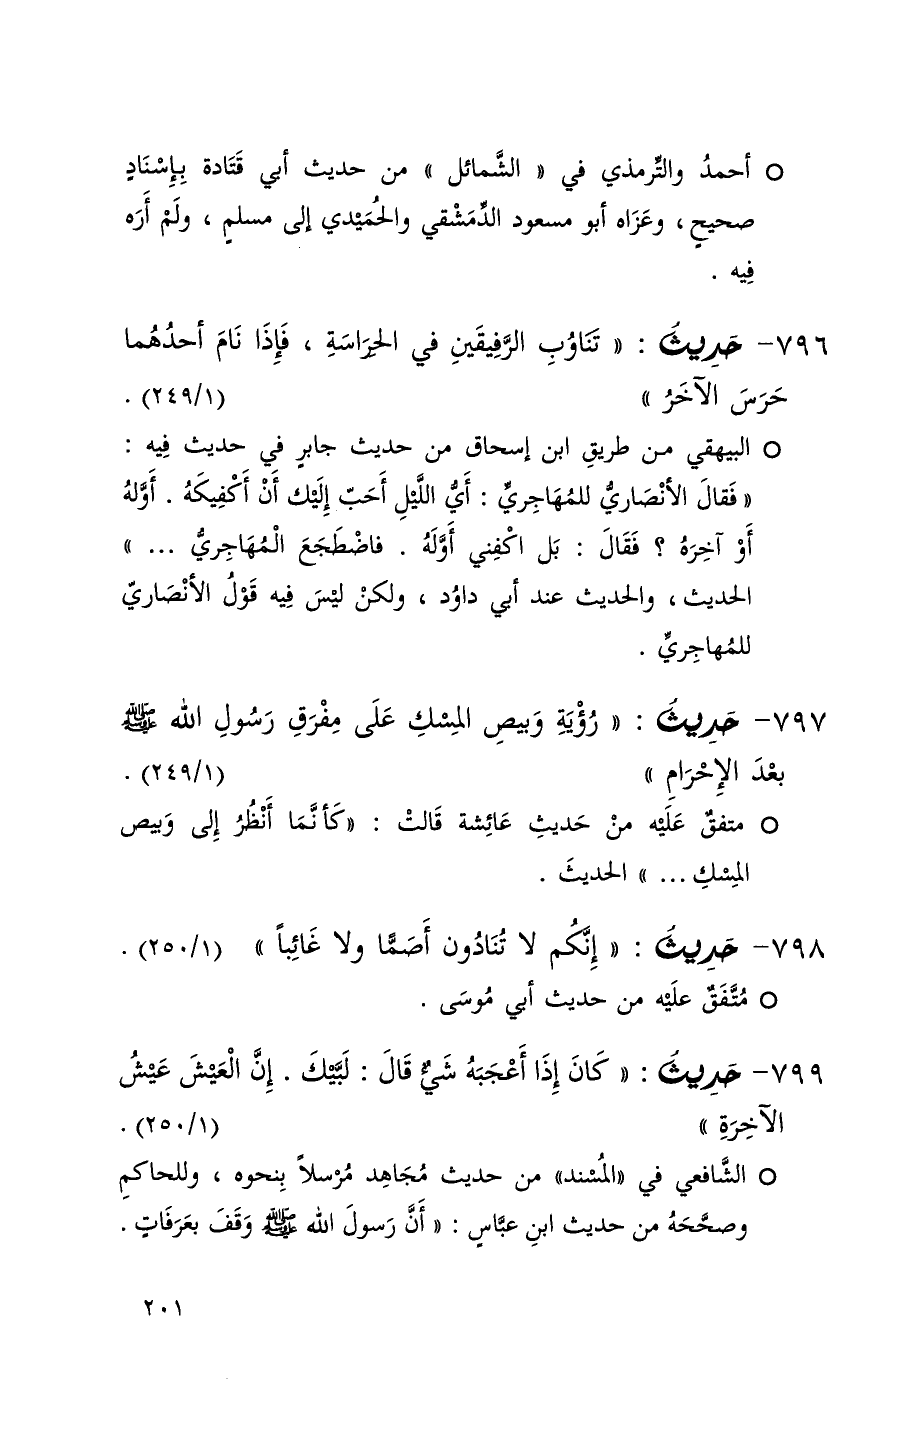 ○ أحمدُ والتِّرمذي في « الشَّمائل » من حديث أبي قَتَادة بِإِسْنَادٍ
صحيحٍ ، وعَزَاه أبو مسعود الدِّمَشْقي والحُمَيْدي إلى مسلمٍ ، ولَمْ أَرَه
فِيه .
٧٩٦- حَدِيثُ : « تَنَاوُبِ الرَّفِيقَينِ في الحِرَاسَةِ ، فَإِذَا نَامَ أحدُهُما
حَرَسَ الآخَرُ » (٢٤٩/١) .
○ البيهقي من طريقِ ابن إسحاق من حديث جابرٍ في حديث فِيه :
« فَقالَ الأنْصَاريُّ للمُهَاجِريِّ : أَيُّ اللَّيْلِ أَحَبّ إِلَيْك أَنْ أَكْفِيكَهُ . أَوَّلهُ
أَوْ آخِرَهُ ؟ فَقَالَ : بَل اكْفِني أَوَّلَهُ . فاضْطَجَعَ الْمُهَاجِريُّ ... »
الحديث ، والحديث عند أبي داوُد ، ولكنْ ليْسَ فِيه قَوْلُ الأنْصَاريّ
للمُهاجِريِّ .
٧٩٧- حَدِيثُ : « رُؤْيَةِ وَبيصِ المِسْكِ عَلَى مِفْرَقِ رَسُولِ الله ﷺ
بعْدَ الإِحْرَامِ » (٢٤٩/١) .
○ متفقٌ عَلَيْه منْ حَديثِ عَائِشة قَالتْ : «كَأنَّمَا أَنْظُرُ إِلى وَبيص
المِسْكِ ... » الحديثَ .
٧٩٨- حَدِيثُ : « إِنَّكُم لا تُنَادُون أَصَمًّا ولا غَائِباً » (٢٥٠/١) .
○ مُتَّفَقٌ علَيْه من حديث أبي مُوسَى .
٧٩٩- حَدِيثُ : « كَانَ إِذَا أَعْجَبَهُ شَيْءٌ قَالَ : لَبَّيْكَ . إِنَّ الْعَيْشَ عَيْشُ
الآخِرَةِ » (٢٥٠/١) .
○ الشَّافعي في «المُسْند» من حديث مُجَاهِد مُرْسلاً بِنحوه ، وللحاكمِ
وصحَّحَهُ من حديث ابنِ عبَّاسٍ : « أَنَّ رَسولَ الله ﷺ وَقَفَ بعَرَفَاتٍ .
٢٠١